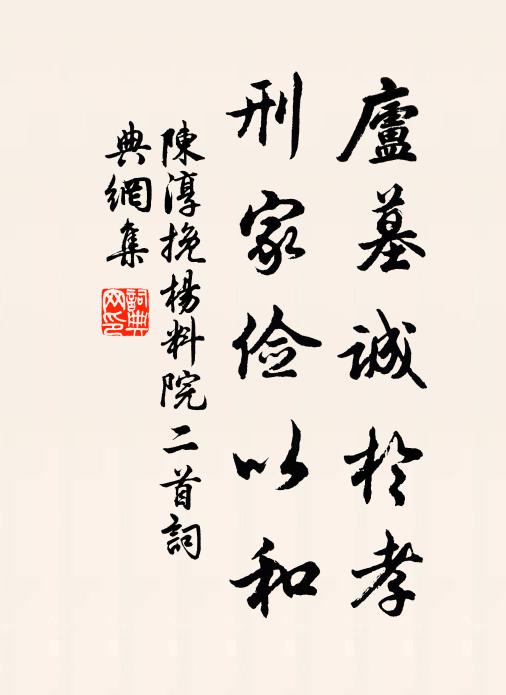 廬墓誠於孝
刑家儉以和
陳淳挽楊料院二首詞
典網集
詞典
网印